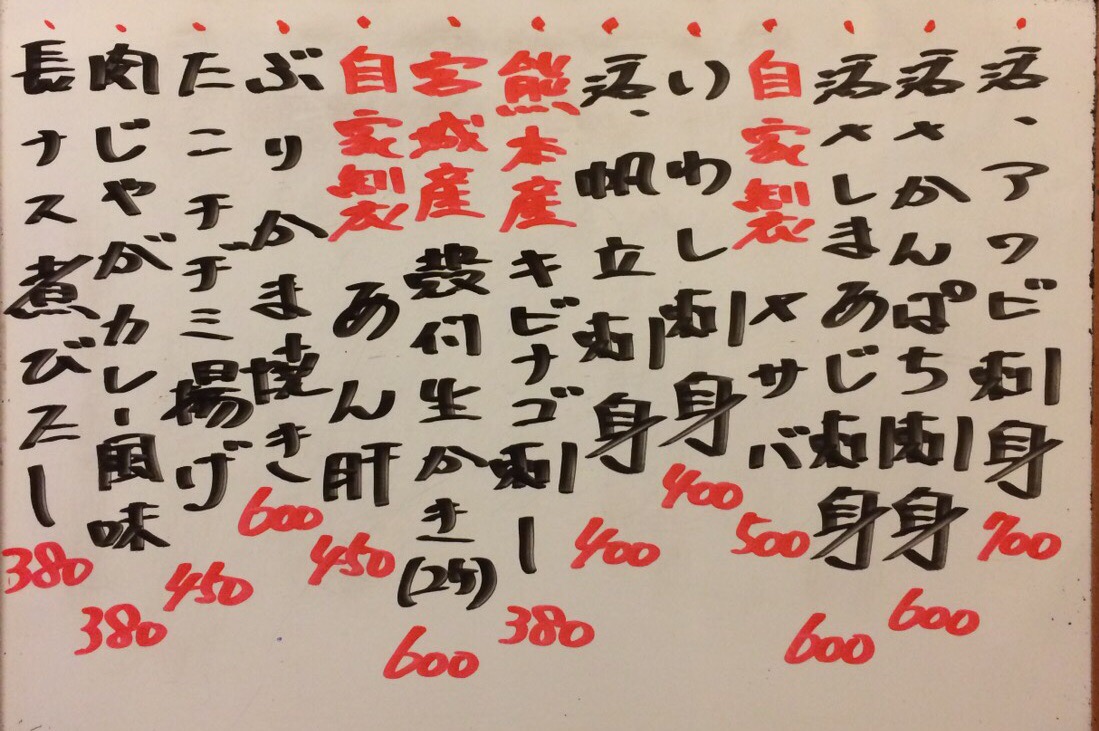 活、アワビ刺身 700
活〆かんぱち刺身 600
活〆しまあじ刺身 600
自家製〆サバ 500
いわし刺身 400
活、帆立刺身 400
熊本産キビナゴ刺し 380
宮城産殻付生かき(2ケ) 600
自家製あん肝 450
ぶりかま焼き 600
たこチヂミ揚げ 450
肉じゃがカレー風味 380
長ナス煮びたし 380